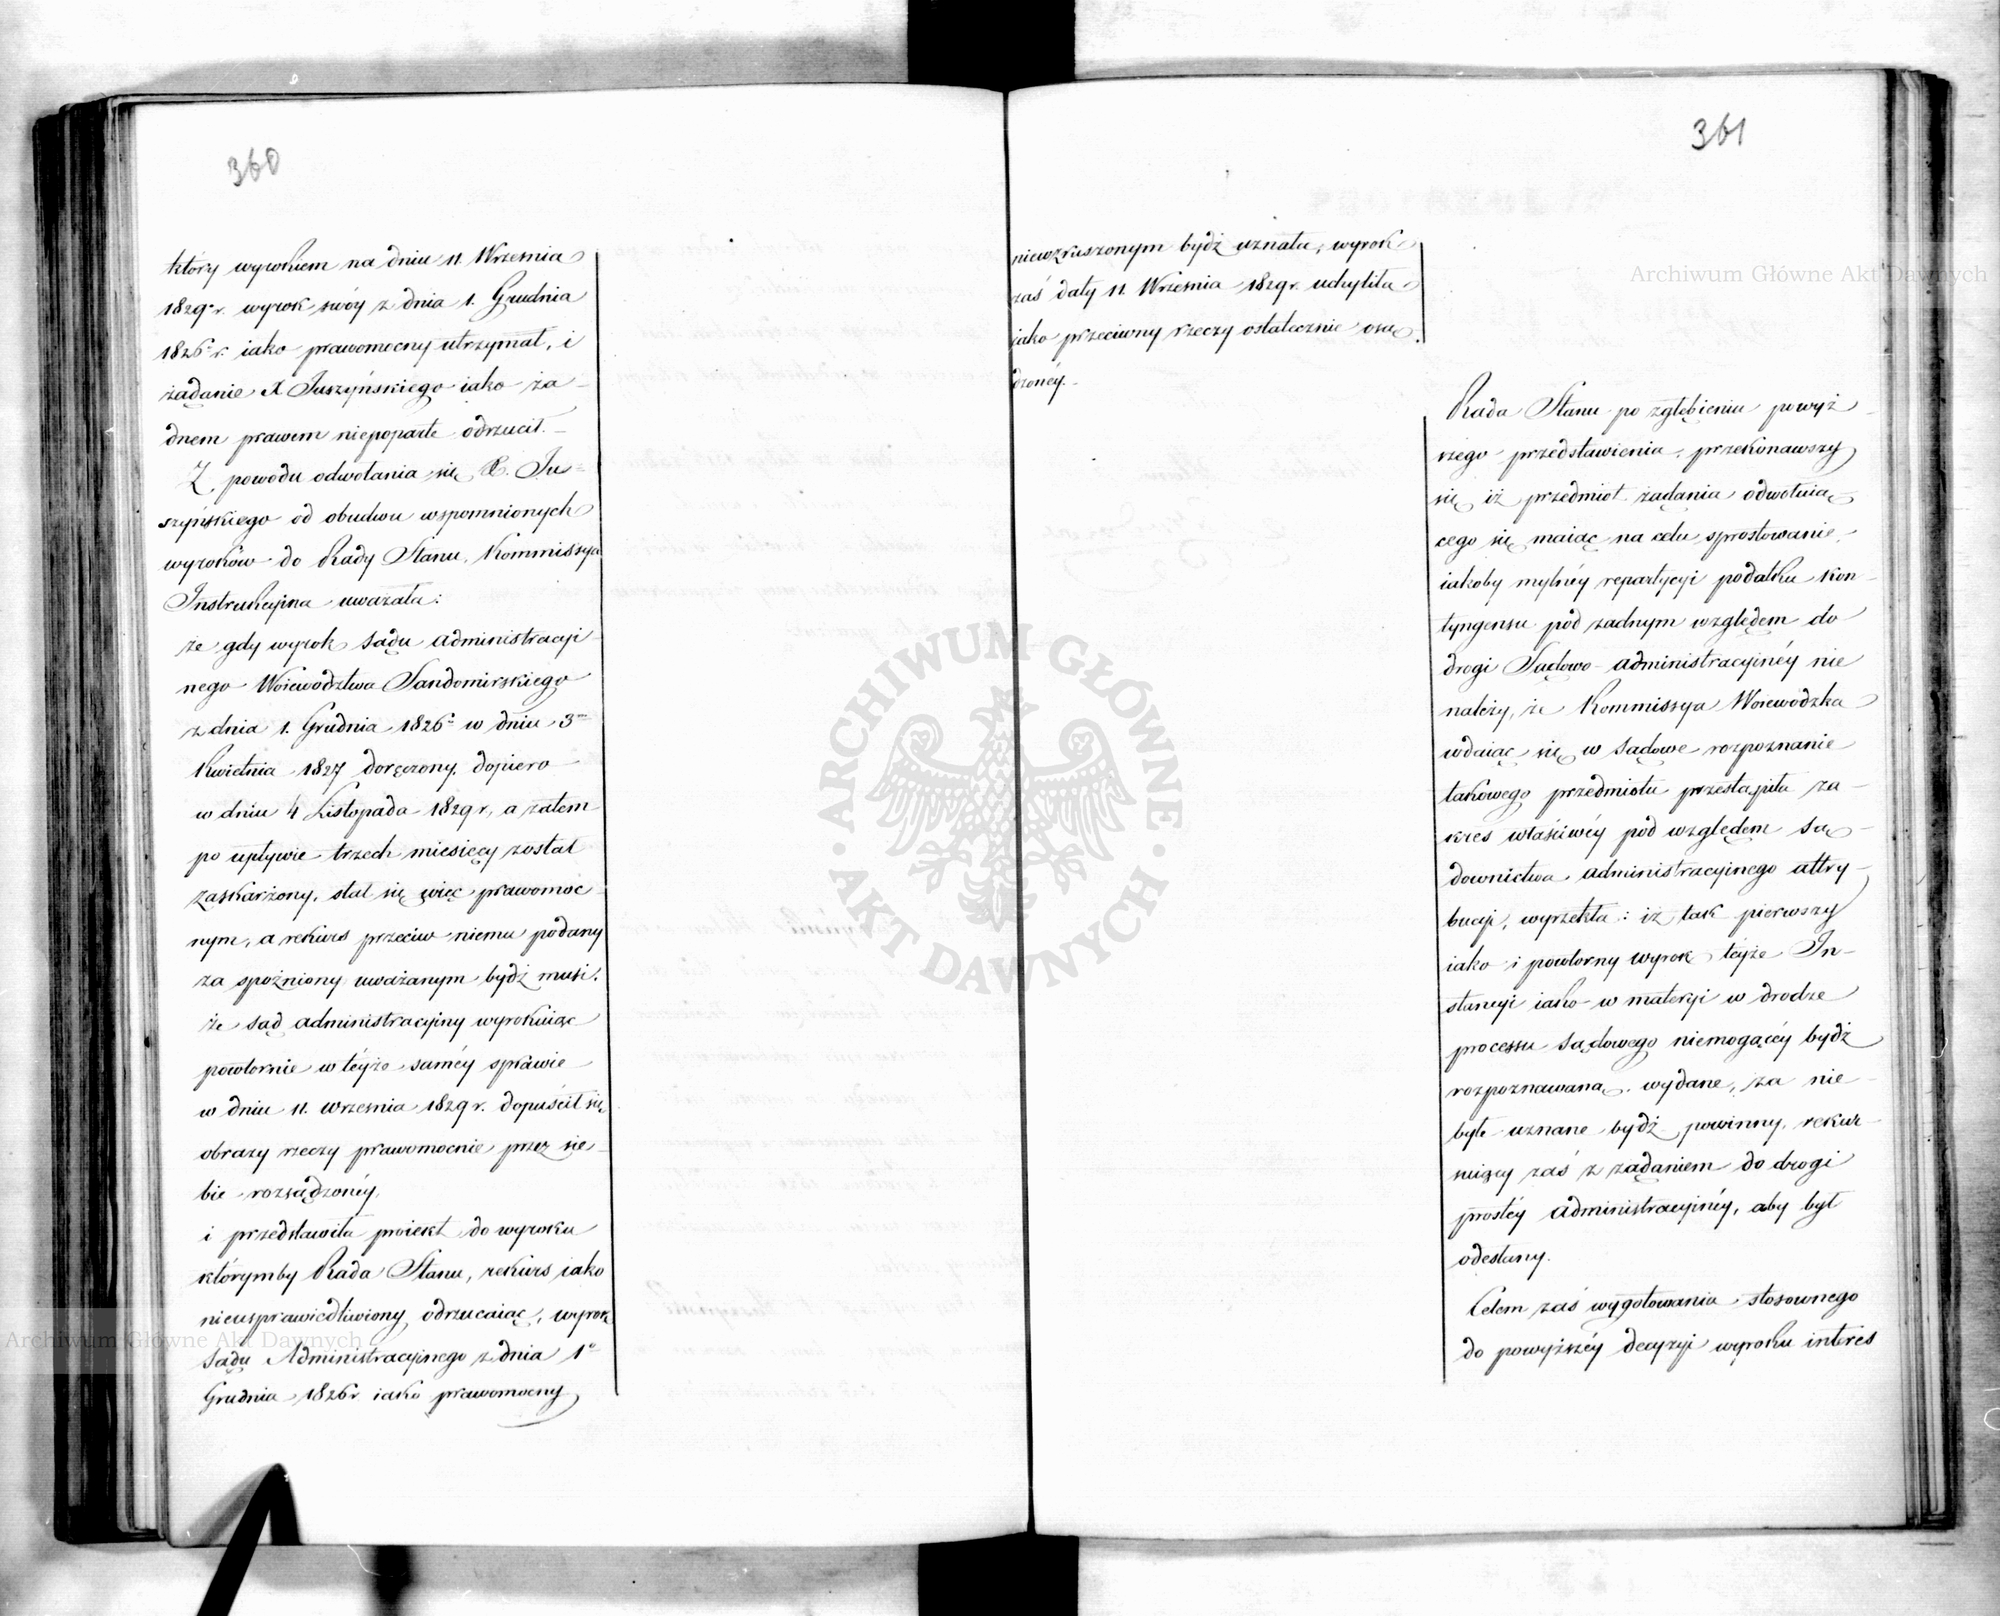 360
który wyrokiem na dniu 11 Września
1829 r. wyrok swóy z dnia 1. Grudnia
1826 r. iako prawomocny utrzymał, i
żądanie X Juszyńskiego iako ża-
dnem prawem niepoparte odrzucił.
Z powodu odwołania się X. Ju=
szyńskiego od obudwu wspomnionych
wyroków do Rady Stanu, Kommissya
Instrukcyina uważała:
że gdy wyrok Sądu administracyi-
nego Woiewództwa Sandomirskiego
z dnia 1. Grudnia 1826 w dniu 3
Kwietnia 1827 doręczony, dopiero
w dniu 4 Listopada 1829 r, a zatem
po upływie trzech miesięcy został
zaskarżony, stał się więc prawomoc
nym, a rekurs przeciw niemu podany
za spóźniony uważanym bydź musi.
że sąd administracyiny wyrokuiąc
powtórnie w téyże saméy sprawie
w dniu 11. września 1829 r. dopuścił się
obrazy rzeczy prawomocnie przez sie-
bie rozsądzonéy,
i przedstawiła proiekt do wyroku
którymby Rada Stanu, rekurs iako
nieusprawiedliwiony odrzucaiąc, wyrok
Sądu Administracyinego z dnia 1º
Grudnia 1826 r iako prawomocny
361
niewzruszonym bydź uznała, wyrok
zaś daty 11. Września 1829 r. uchyliła
jako przeciwny rzeczy ostatecznie osą
dzonéy.
Rada Stanu po zgłębieniu powyż-
szego przedstawienia, przekonawszy
się iż przedmiot żądania odwołuią
cego się maiąc na celu sprostowanie
iakoby mylnéy repartycyi podatku kon-
tyngensu pod żadnym względem do
drogi Sądowo-administracyinéy nie
należy, że Kommissya Woiewódzka
wdaiąc się w sądowe rozpoznanie
takowego przedmiotu przestąpiła za-
kres właściwéy pod względem są-
downictwa administracyinego attry-
bucyi, wyrzekła: iż tak pierwszy
iako i powtorny wyrok téyże In-
stancyi iako w materyi w drodze
processu Sądowego niemogącéy bydź
rozpoznawaną wydane, za nie-
byłe uznane bydź powinny, rekur-
suiący zaś z żądaniem do drogi
prostéy administracyinéy, aby był
odesłany.
Celem zaś wygotowania stosownego
do powyższéy decyzyi wyroku interes
Archiwum Główne Akt Dawnych
Archiwum Główne Akt Dawnych
ARCHIWUM GŁÓWNE
AKT DAWNYCH